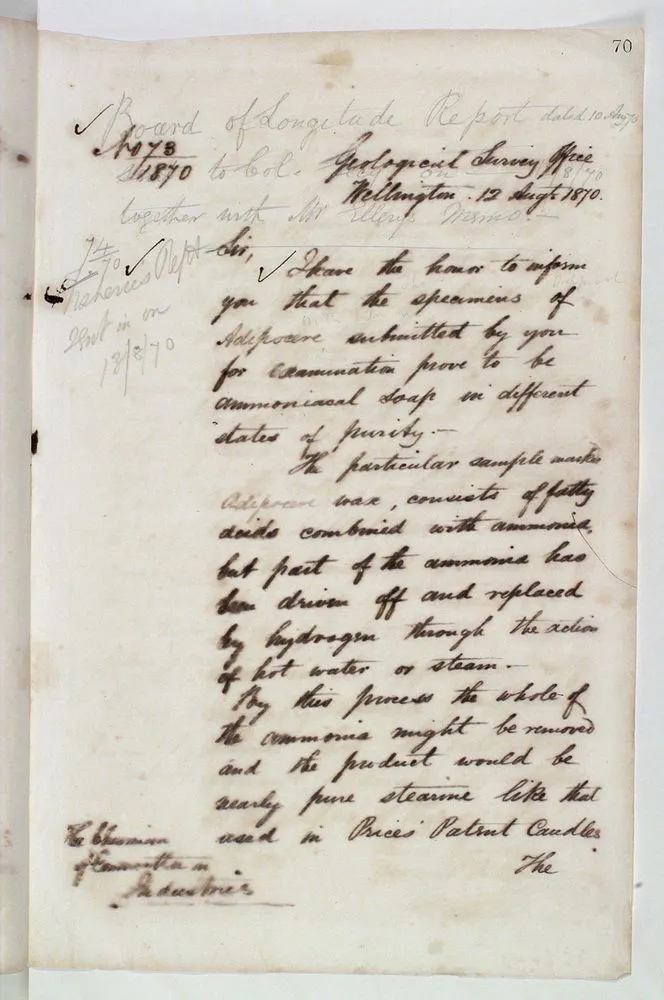 70
Board of Longitude Report dated 10 Aug 70
No 73
1870 to Col.
Geological Survey Office
Wellington. 12 Augt 1870.
together with Mr Ellery's Memo. —
74
70
Fisheries Rept
Sent in on
13/8/70
Sir,
I have the honor to inform
you that the specimens of
Adipocere submitted by you
for examination prove to be
ammoniacal soap in different
states of purity. —
The particular sample marked
Adipocere wax, consists of fatty
acids combined with ammonia,
but part of the ammonia has
been driven off and replaced
by hydrogen through the action
of hot water or steam. —
By this process the whole of
the ammonia might be removed
and the product would be
nearly pure stearine like that
used in Prices' Patent Candles
The
The Chairman
of Committee on
Industries